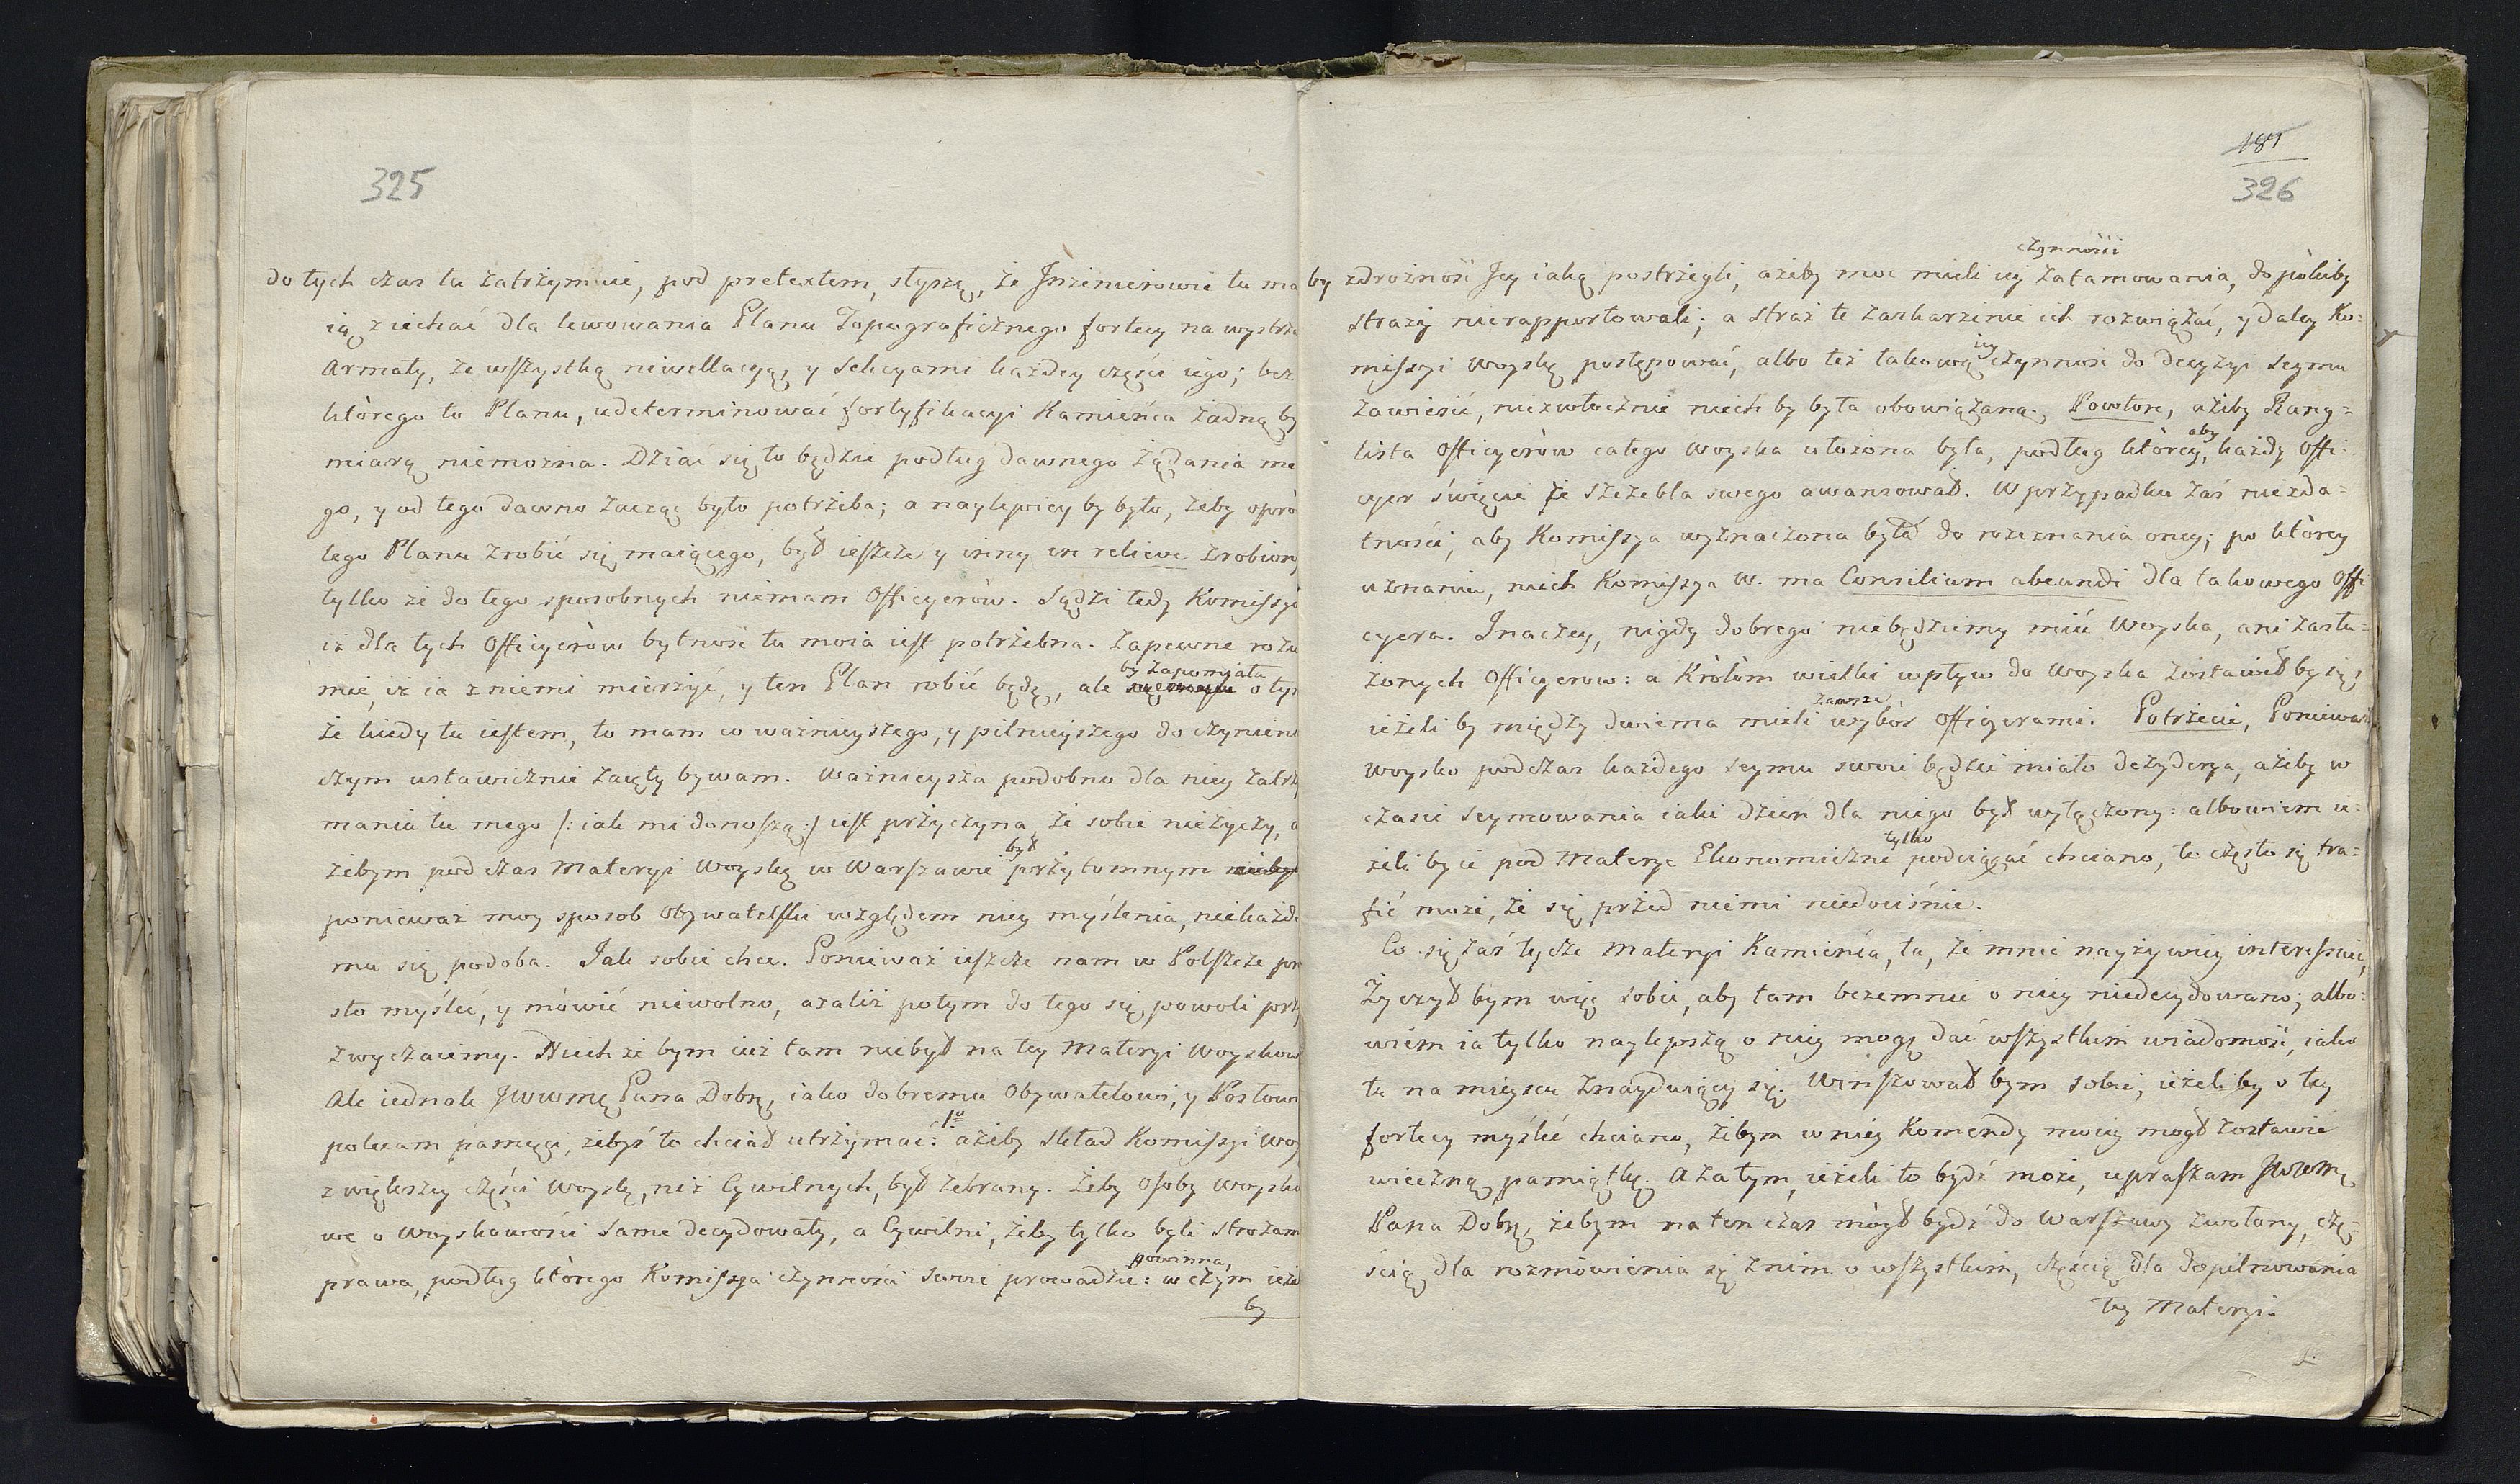 325
do tych czas tu zatrzymuie, pod pretextem, słyszę, że Inżinierowie tu ma
ią ziechać dla lewowania Planu Topograficznego fortecy na wystrza
Armaty, ze wszystką niwellacyą, y sekcyami każdey części iego; bez
którego to Planu, udeterminować fortyfikacyi Kamieńca żadną by
miarą niemożna. Dziać się to będzie podług dawnego żądania me
go, y od tego dawno zacząć było potrzeba; a naylepiey by było, żeby opró
tego Planu zrobić się maiącego, był ieszcze y inny en relieve zrobiony
tylko że do tego sposobnych niemam Officyerów. Sądzi tedy Komissyi
iż dla tych Officyerów bytność tu moia iest potrzebna. Zapewne rozu
mie, iż ia z niemi mierzyć, y ten Plan robić będę, ale by zapomniała o tym
że kiedy tu iestem, to mam co ważnieyszego, y pilnieyszego do czynieni
czym ustawicznie zaięty bywam. Ważnieysza podobno dla niey zatrzy
mania tu mego /: iak mi donoszą :/ iest przyczyna, że sobie nieżyczy, a
żebym pod czas materyi woyskę w Warszawie był przytomnym
ponieważ moy sposob obywatelski względem niey myślenia, niekażde
mu się podoba. Jak sobie chce. Ponieważ ieszcze nam w Polszcze pro
sto myśleć, y mówić niewolno, azaliż potym do tego się powoli przy
zwyczaiemy. Niech że bym iuż tam niebył na tey materyi woyskow
Ale iednak JWWmę Pana Dobrę, iako dobremu Obywatelowi, y Posłowi
polecam pamięci, żebyś to chciał utrzymać: 1o ażeby skład Komissyi woy
z większey części woyskę, niż Cywilnych, był zebrany. Żeby osoby woysko
we o woyskowości same decydowały, a Cywilni, żeby tylko byli strożam
prawa, podług którego Komissya czynności swoie prowadzić powinna: w czym ieże
by
181
326
czynności
by zdrożność Jey iaką postrzegli, ażeby moc mieli iey zatamowania, dopókiby
straży nierapportowali; a straż te zaskarżenie ich rozwiązać, y daley Ko=
missyi woyskę postępować, albo też takową iey czynność do decyzyi Seymu
zawiesić, niezwłocznie niech by była obowiązaną. Powtore, ażeby Rang=
lista Officyerów całego woyska ułożona była, podług którey, aby każdy Offi=
cyer święcie ze szczebla swego awansował. W przypadku zaś niezda=
tności, aby Komissya wyznaczona była do rozeznania oney; po którey
uznaniu, niech Komissya W. ma Consilium abeundi dla takowego Offi
cyera. Inaczey, nigdy dobrego niebędziemy mieć woyska, ani zasłu=
żonych Officyerow: a Królóm wielki wpływ do woyska zostawił by się,
ieżeli by między dwiema mieli zawsze wybór Officyerami. Potrzecie, Ponieważ
woysko podczas każdego seymu swoie będzie miało dezyderya, ażeby w
czasie Seymowania iaki dzień dla niego był wyłączony: albowiem ie=
żeli by ie pod materye Ekonomiczne tylko podciągać chciano, to często się tra=
fić może, że się przed niemi niedociśnie.
Co się zaś tycze materyi Kamieńca, ta, że mnie nayżywiey interessuie,
Życzył bym więc sobie, aby tam bezemnie o niey niedecydowano; albo=
wiem ia tylko naylepszą o niey mogę dać wszystkim wiadomość, iako
tu na mieyscu znayduiący się. Winszował bym sobie, ieżeliby o tey
fortecy myśleć chciano, żebym w niey Komendy moiey mogł zostawić
wieczną pamiątkę. A zatym, ieżeli to bydź może, upraszam JWWmę
Pana Dobrę, żebym na ten czas mógł bydź do Warszawy zwołany, czę=
ścią dla rozmówienia się z nim o wszystkim, częścią dla dopilnowania
tey materyi.